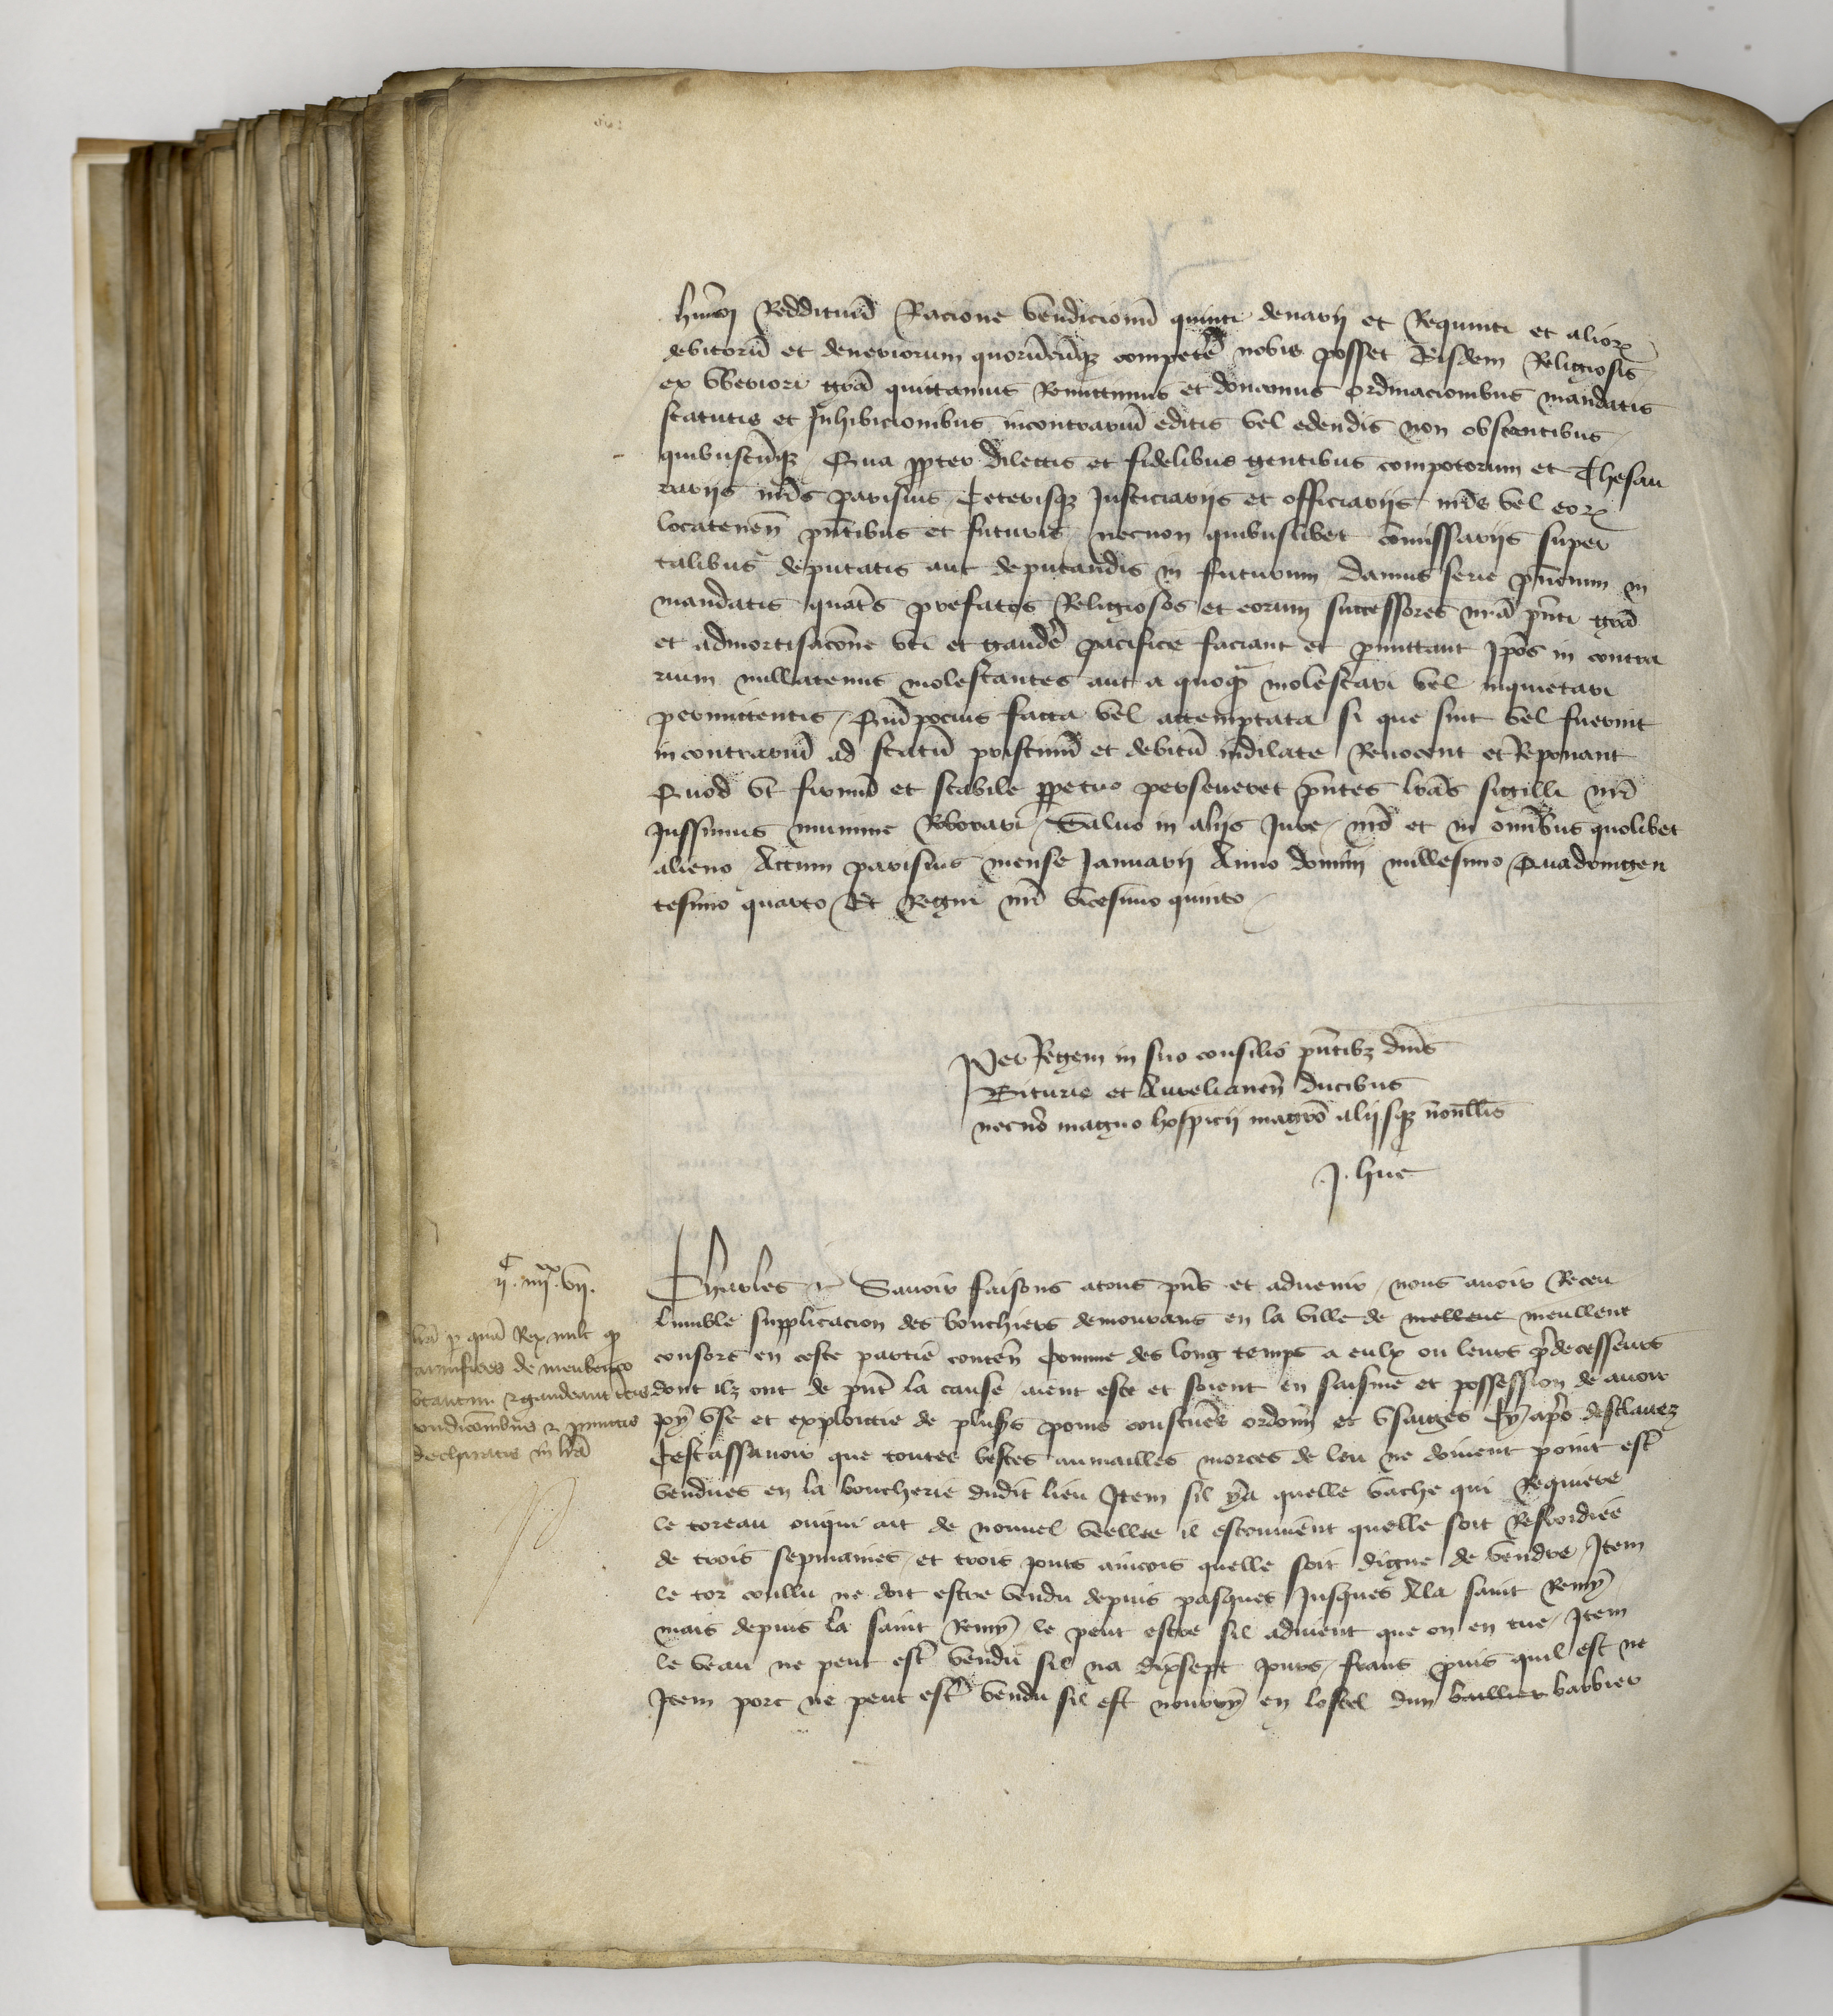 hmōi Reddituū Racione vendicionū quinti denarij et Requinti et alioꝝ
debitorū et deneriorum quorūcūqꝫ competeᷓ nobis posset Eisdem Religiosis
ex vberiori gr̄a quittamus Remittimus et donamus ordinacionibus mandatis
statutis et Inhibicionibus incontrariū editis vel edendis non obstentibus
quibuscūqꝫ Qua ꝓpter dilectis et fidelibus gentibus compotorum et Thesau
rarijs nr̄is parisius Ceterisqꝫ Justiciarijs et officiarijs nr̄is vel eoꝝ
locatenen̄ pn̄tibus et futuris necnon quibuslibet com̄issarijs super
talibus deputatis aut deputandis in futurum Damus serie pn̄cium in
mandatis quat̄s prefatos Religiosos et eorum successores nr̄a pn̄ti gr̄a
et admortisacōne vti et gaudēr pacifice faciant et ꝑmittant Ip̄os in contra
rium nullatenus molestantes aut a quoqᷓ molestari vel inquietari
permittentis / Quīpocius facta vel attemptata si que sint vel fuerint
in contrariū ad statū pristinū et debitū indilate Reuocent et Reponant
Quod vt firmū et stabile ꝑpetuo perseueret pn̄tes lr̄as sigilli nr̄i
Jussimus munime Roborari / Saluo in alijs Jure nr̄o et in om̄ibus quolibet
alieno Actum parisius mense Januarij Anno domini millesimo Quadringen
tesimo quarto Et Regni nr̄i vicesimo quinto
Per Regem in suo consilio pn̄tibꝫ dn̄is
Biturie et Aurelianen̄ ducibus
necnō magno hospicij magrō alijsqꝫ nōnll̄is
J. hue
C xx
ij. iiij. vij.
lr̄a ꝑ quā Rex vult qꝫ
carnifices de meulento
vtantur et gaudeant
condicōnibus et punctis
declaratis in lr̄a
Charles etc Sauoir faisons atous pn̄s et aduenir / nous auoir Receu
lumble supplicacion des bouchiers demourans en la ville de mellent meullent
consors en ceste partie conten̄ Comme des long temps a eulx ou leurs p̄decesseurs
dont ilz ont de pn̄t la cause aient este et soient en saisine et possession de auoir
joy vse et exploictie de plus̄rs poins coustum̄es ordonn̄ et vsaiges Cy apr̄s desclairez
Cestassauoir que toutes bestes aumailles morces de leu ne doiuent point estr̄
vendues en la boucherie dudit lieu Item sil ya quelle vache qui Requiere
le toreau ouqui ait de nouuel veellee il esconuient quelle soit Refroidiee
de trois sepmaines et trois jours aincois quelle soit digne de vendre / Item
le tor coullu ne doit estre vendu depuis pasques Jusques Ala saint Remy
mais depuis la saint Remy le peut estre sil aduient que on en tue / Item
le veau ne peut estr̄ vendu sil na dixsept jours frans puis quil est ne
Item porc ne peut estr̄ vendu sil est nourry en lostel dun baillier barbier